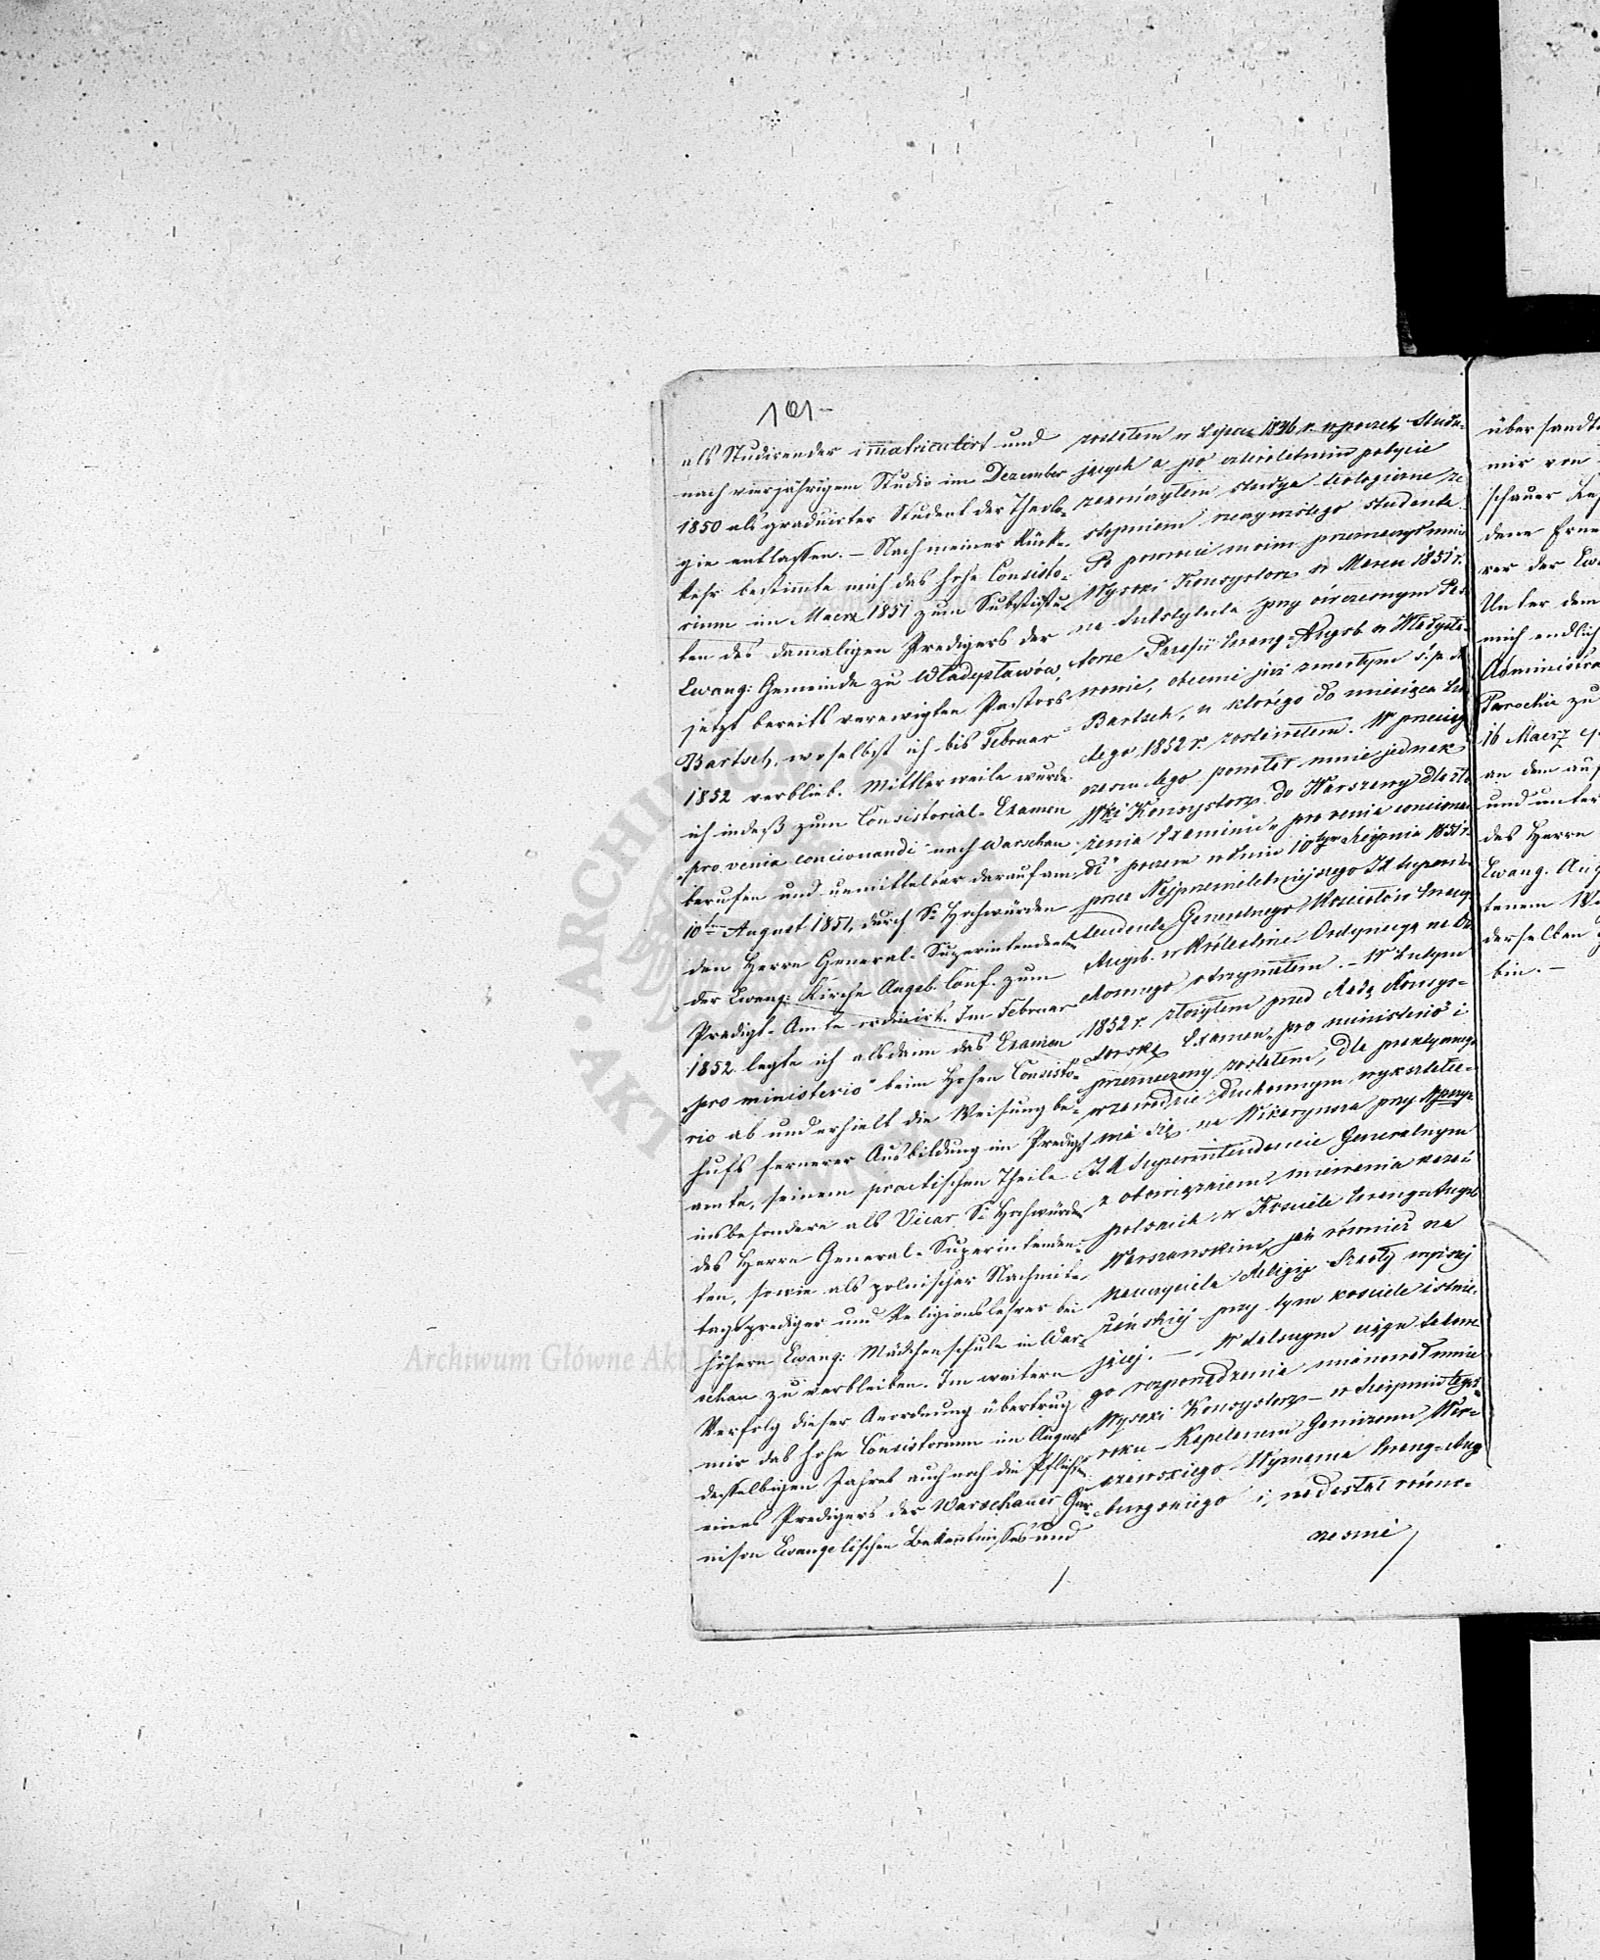 101-
als Studirender immatriculirt und
nach vierjährigem Studio im Dezember
1850 als graduirter Student der Theolo-
gie entlassen. – Nach meiner Rück-
kehr bestimmte mich das hohe Consisto-
rium im Maerz 1851 zum Substitu-
ten des damaligen Predigers der
Ewang: Gemeinde zu Władysławów,
jetzt bereits verewigten Pastors
Bartsch, woselbst ich bis Februar
1852 verblieb. Mittlerweile wurde
ich indeß zum Consistorial-Examen
"pro venia concionandi" nach Warschau
berufen und unmittelbar darauf am
10ten August 1851, durch Se Hochwürden
den Herrn General-Superintendenten
der Ewang: Kirche Augsb. Conf. zum
Predigt-Amte ordinirt. Im Februar
1852 legte ich alsdann das Examen
"pro ministerio" beim Hohen Consisto-
rio ab und erhielt die Weisung be-
hufs fernerer Ausbildung im Predigt-
amte, seinem practischen Theile
insbesondere als Vicar Sr Hochwürden
des Herrn General-Superintenden-
ten, sowie als polnischer Nachmit-
tagsprediger und Religionslehrer bei
höhern Ewang: Mädchenschule in War-
schau zu verbleiben. Im weitern
Verfolg dieser Anordnung übertrug
mir das hohe Consistorium im August
desselbigen Jahres auch noch die Pflichten
eines Predigers der Warschauer Gar-
nison Ewangelischen Bekenntnisses und
zostałem w Lipcu 1846 r. w poczet Studu-
jących a po czteroletnim pobycie
zakończyłem studya teologiczne ze
stopniem rzeczywistego studenta.
Po powrocie moim przeznaczył mnie
Wysoki Konsystorz w Marcu 1851 r.
na Substytuta przy ówczesnym Pas-
torze Parafii Ewang-Augsb. w Władysła-
wowie, obecnie już zmarłym ś.p.
Bartsch, u którego do miesiąca Lu-
tego 1852 r. zostawałem. W przeciągu
czasu tego powołał mnie jednak
Wki Konsystorz do Warszawy dla zło-
żenia Examinu "pro venia concionan-
di" poczem w dniu 10tym Sierpnia 1851 r.
przez Najprzewielebniejszego JX Superin-
tendenta Generalnego Kościołów Ewang.
Augsb. w Królestwie Ordynacyę na Du-
chownego otrzymałem. – W Lutym
1852 r. złożyłem przed Radą Konsys-
torską Examen "pro ministerio" i
przeznaczony zostałem, dla praktycznego
w zawodzie Duchownym wykształce-
nia się na Wikaryusza przy
JX Superintendencie Generalnym
z obowiązkiem miewania kazań
polskich w Kościele Ewang-Augsb
Warszawskim, jak również na
nauczyciela Religii Szkoły wyższej
żeńskiej przy tym kościele istnie-
jącej. – W dalszym ciągu takowe-
go rozporządzenia mianował mnie
Wysoki Konsystorz – w Sierpniu tegoż
roku – Kapelanem Garnizonu War-
szawskiego Wyznania Ewang-Aug
burgskiego i nadesłał równo-
cześnie
über sandt
mir von
schauer
dene
vor der Ewa
Unter dem
mich endlich
Administra
Parochie zu
16 Maerz
an dem auf
und unter
des Herrn
Ewang. Aug
tenem
derselben
bin. –